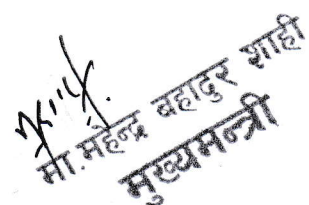 मा. महेन्द्र बहादुर शाही
मुख्यमन्त्री